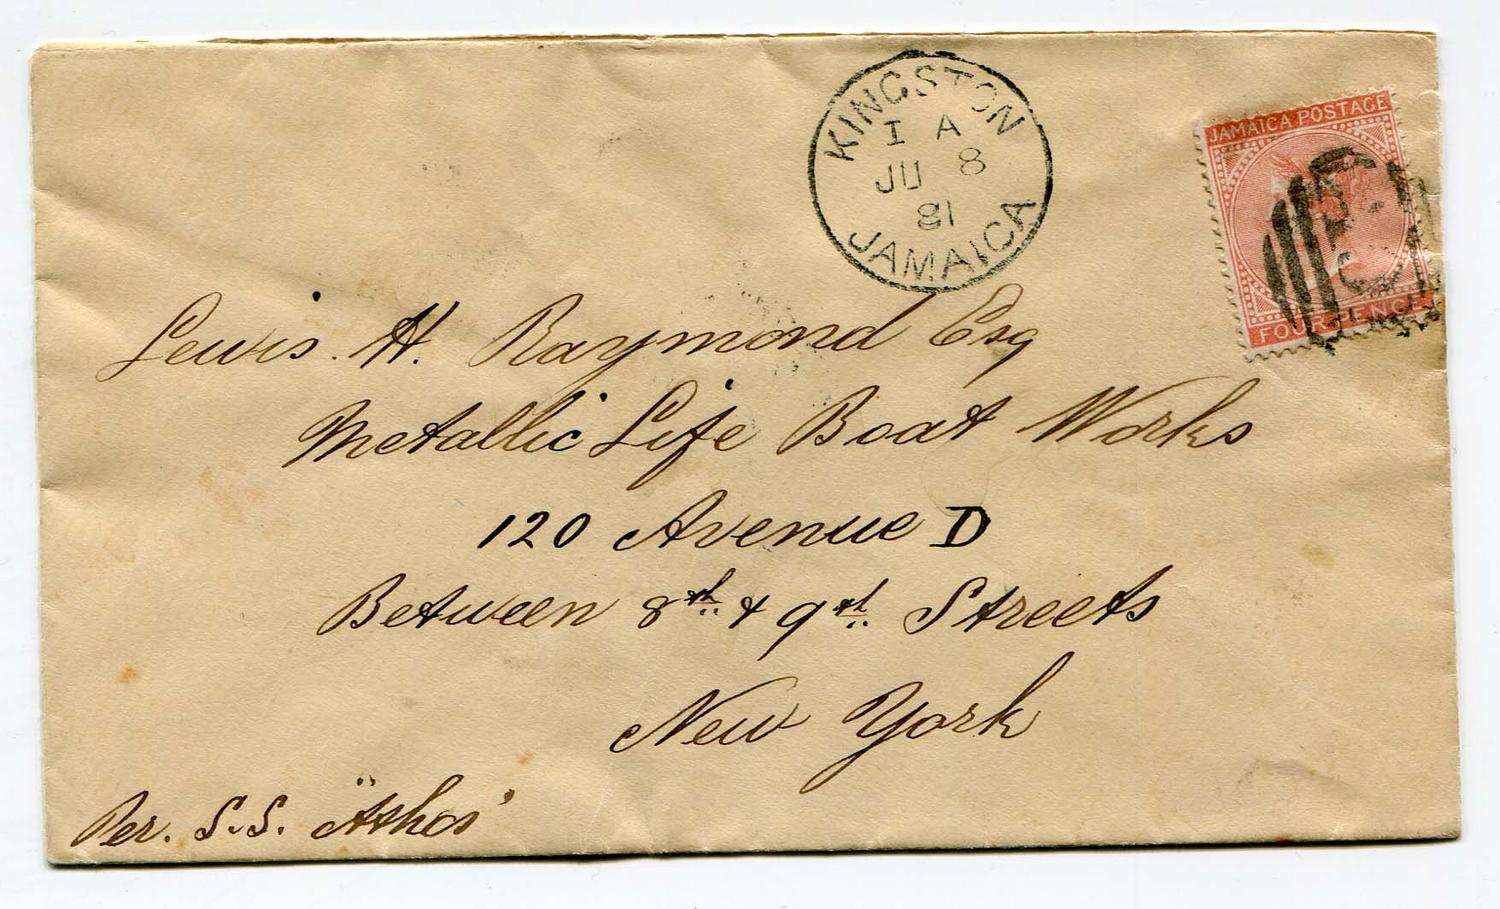 KINGSTON
I A
JU 8
81
JAMAICA
JAMAICA POSTAGE
FOUR PENCE
Lewis. H. Raymond Esq
Metallic Life Boat Works
120 Avenue D
Between 8th & 9th Streets
New York
Per. S.S. "Athos"